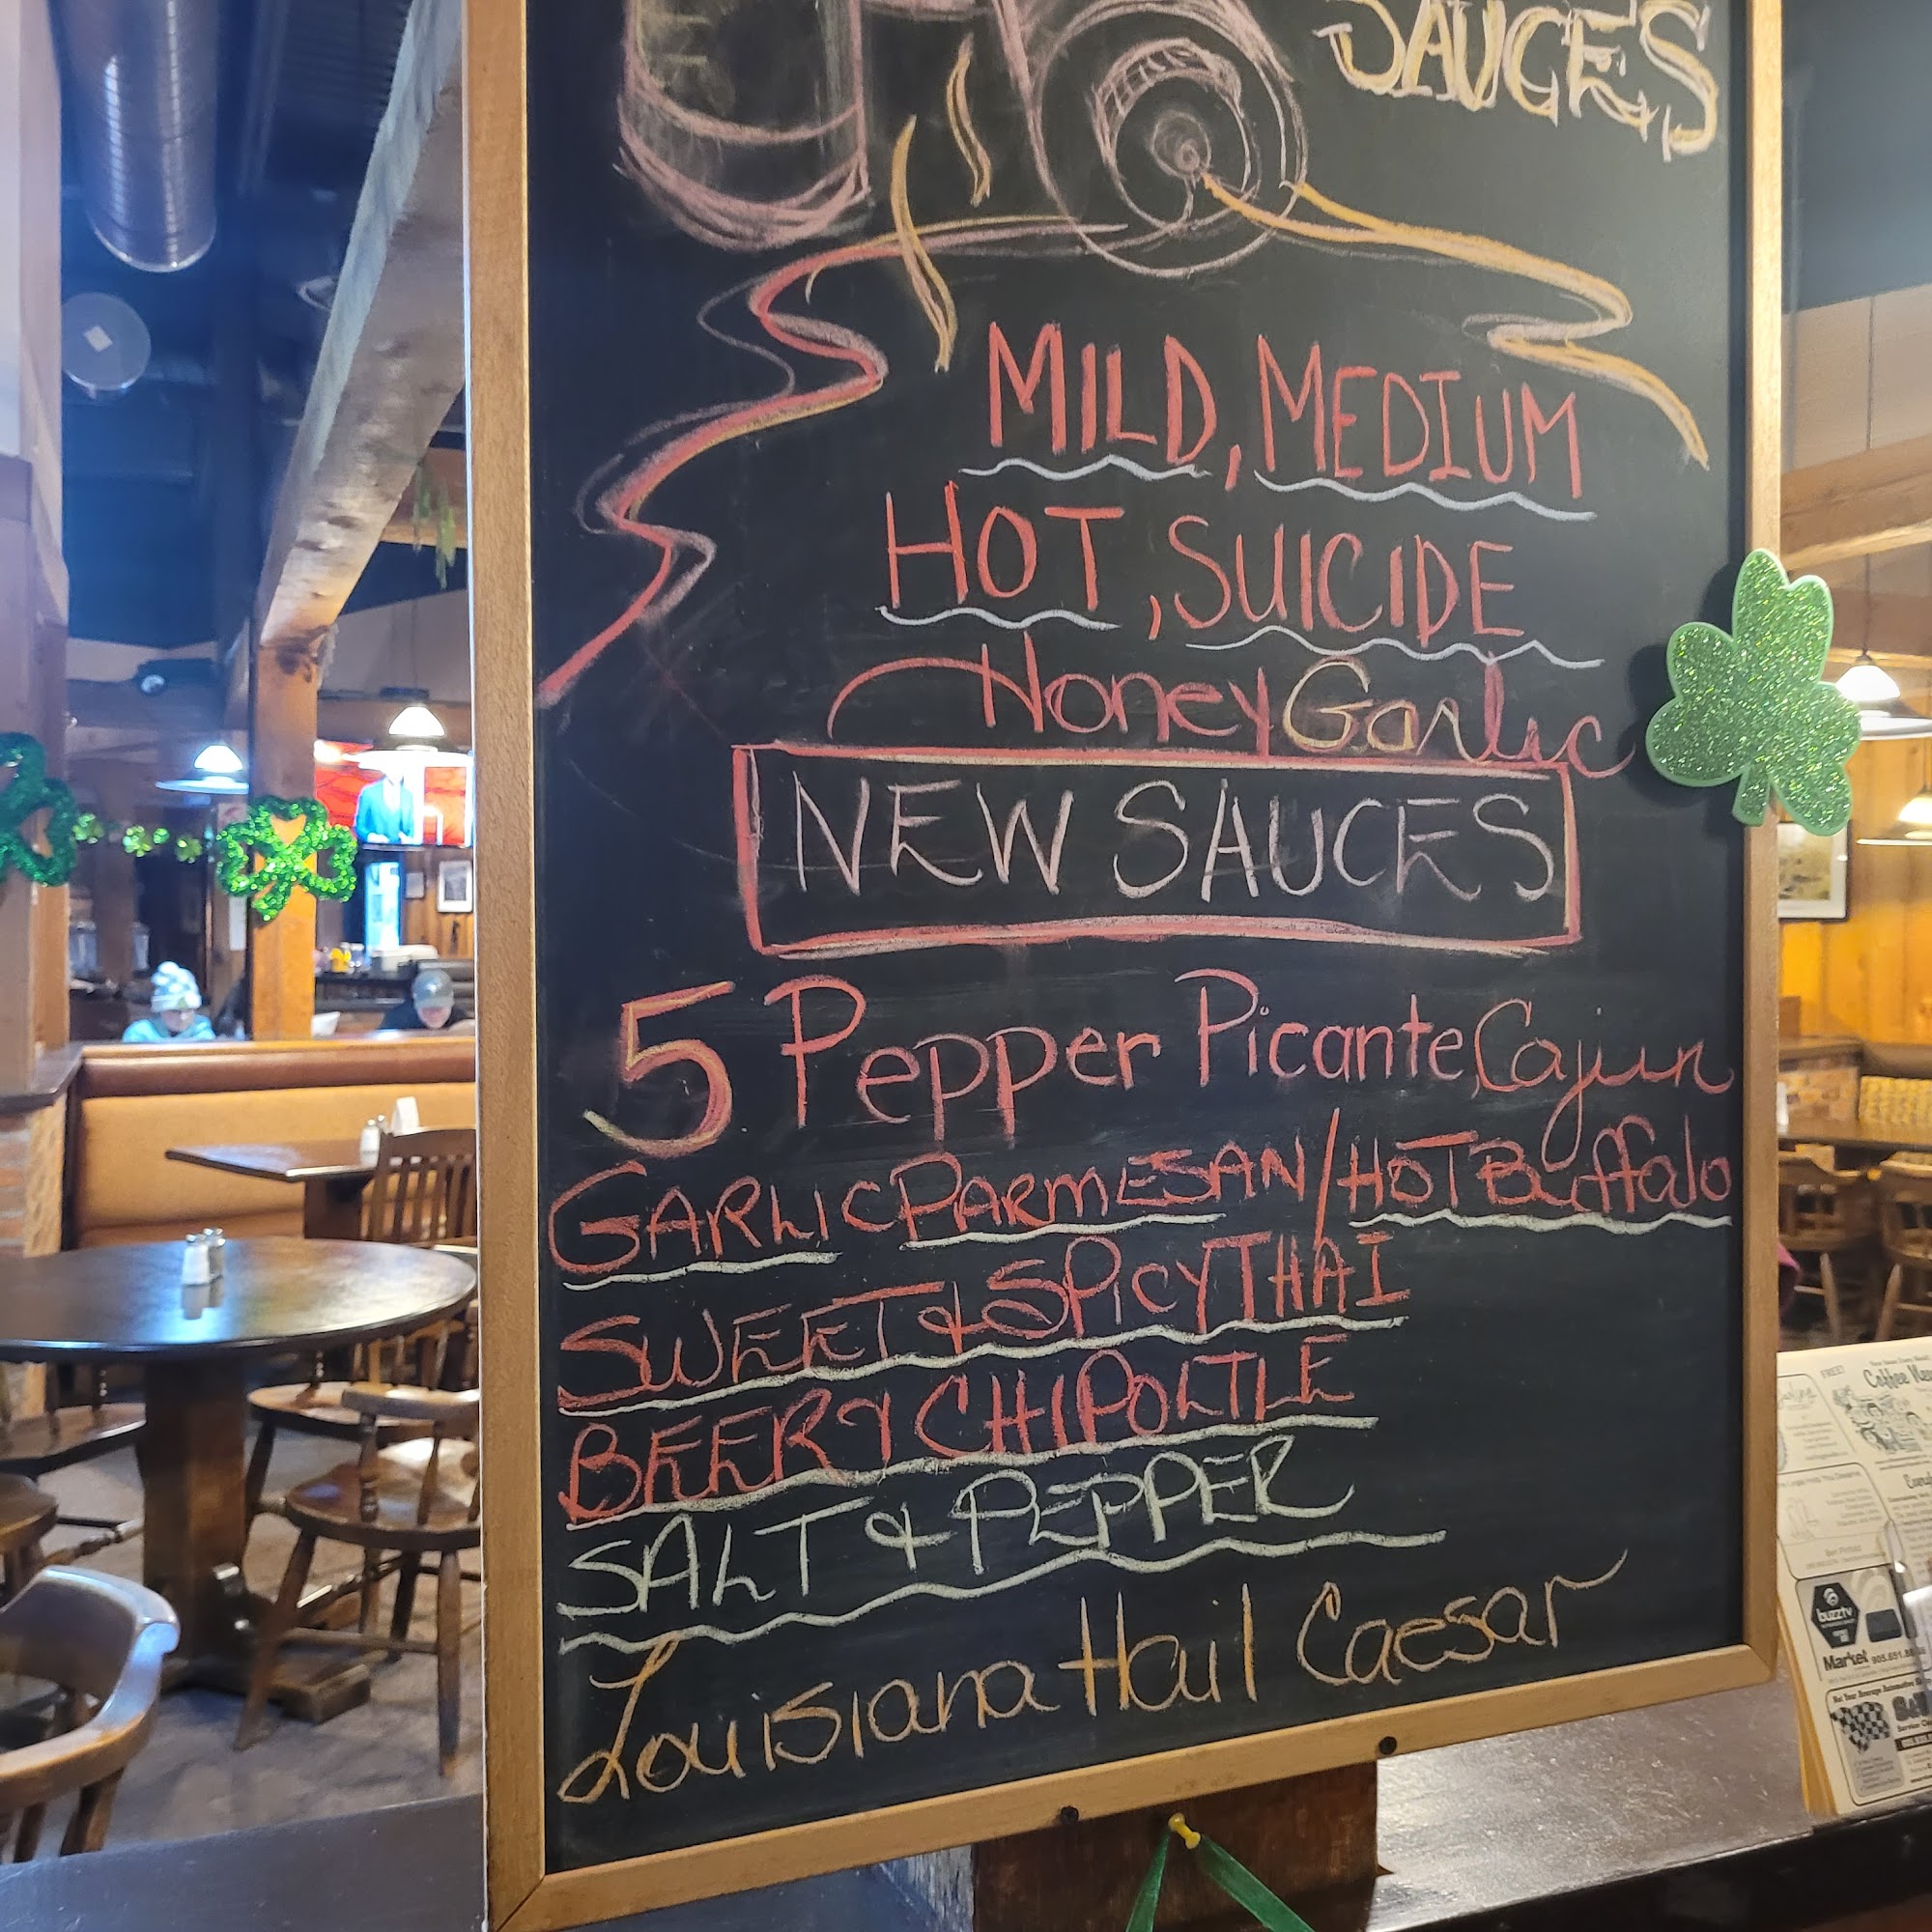 SAUCES
MILD, MEDIUM
HOT, SUICIDE
Honey Garlic
NEW SAUCES
5 Pepper Picante, Cajun
GARLIC PARMESAN/HOT Buffalo
SWEET & SPICY THAI
BEER & CHIPOLTLE
SALT & PEPPER
Louisiana Hail Caesar
FREE!
Coffee New
buzztv
Market 905.691.8
Not Your Average Automotive